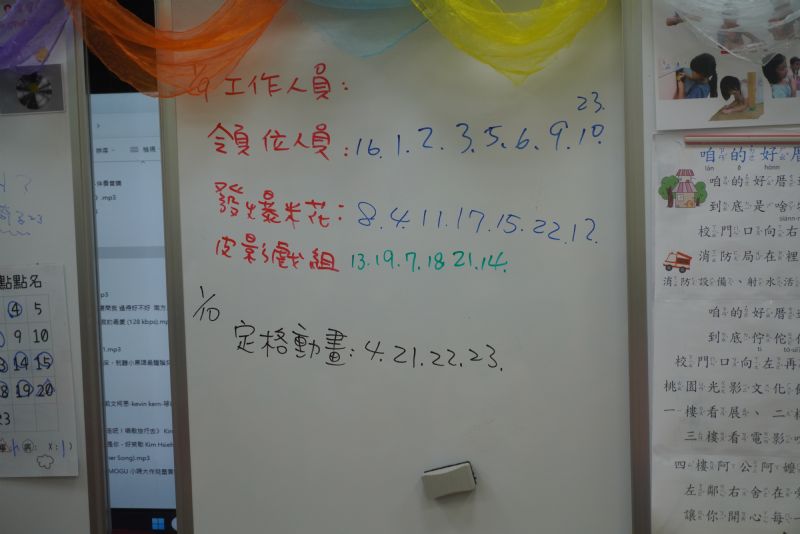 1/9 工作人員:
23.
領位人員:16.1.2.3.5.6.9.10.
發爆米花:8.4.11.17.15.22.12.
皮影戲組 13.19.7.18 21.14.
1/10
定格動畫:4.21.22.23.
點點名
4 5
9 10
14 15
18 19 20
23
.mp3
咱的好厝
咱的好厝
到底是啥
校門口向右
消防局在裡
消防設備、射水活
咱的好厝
到底佇佗
校門口向左再
桃園光影文化
一樓看展、二
三樓看電影
四樓阿公阿嬤
左鄰右舍在
讓你開心每一